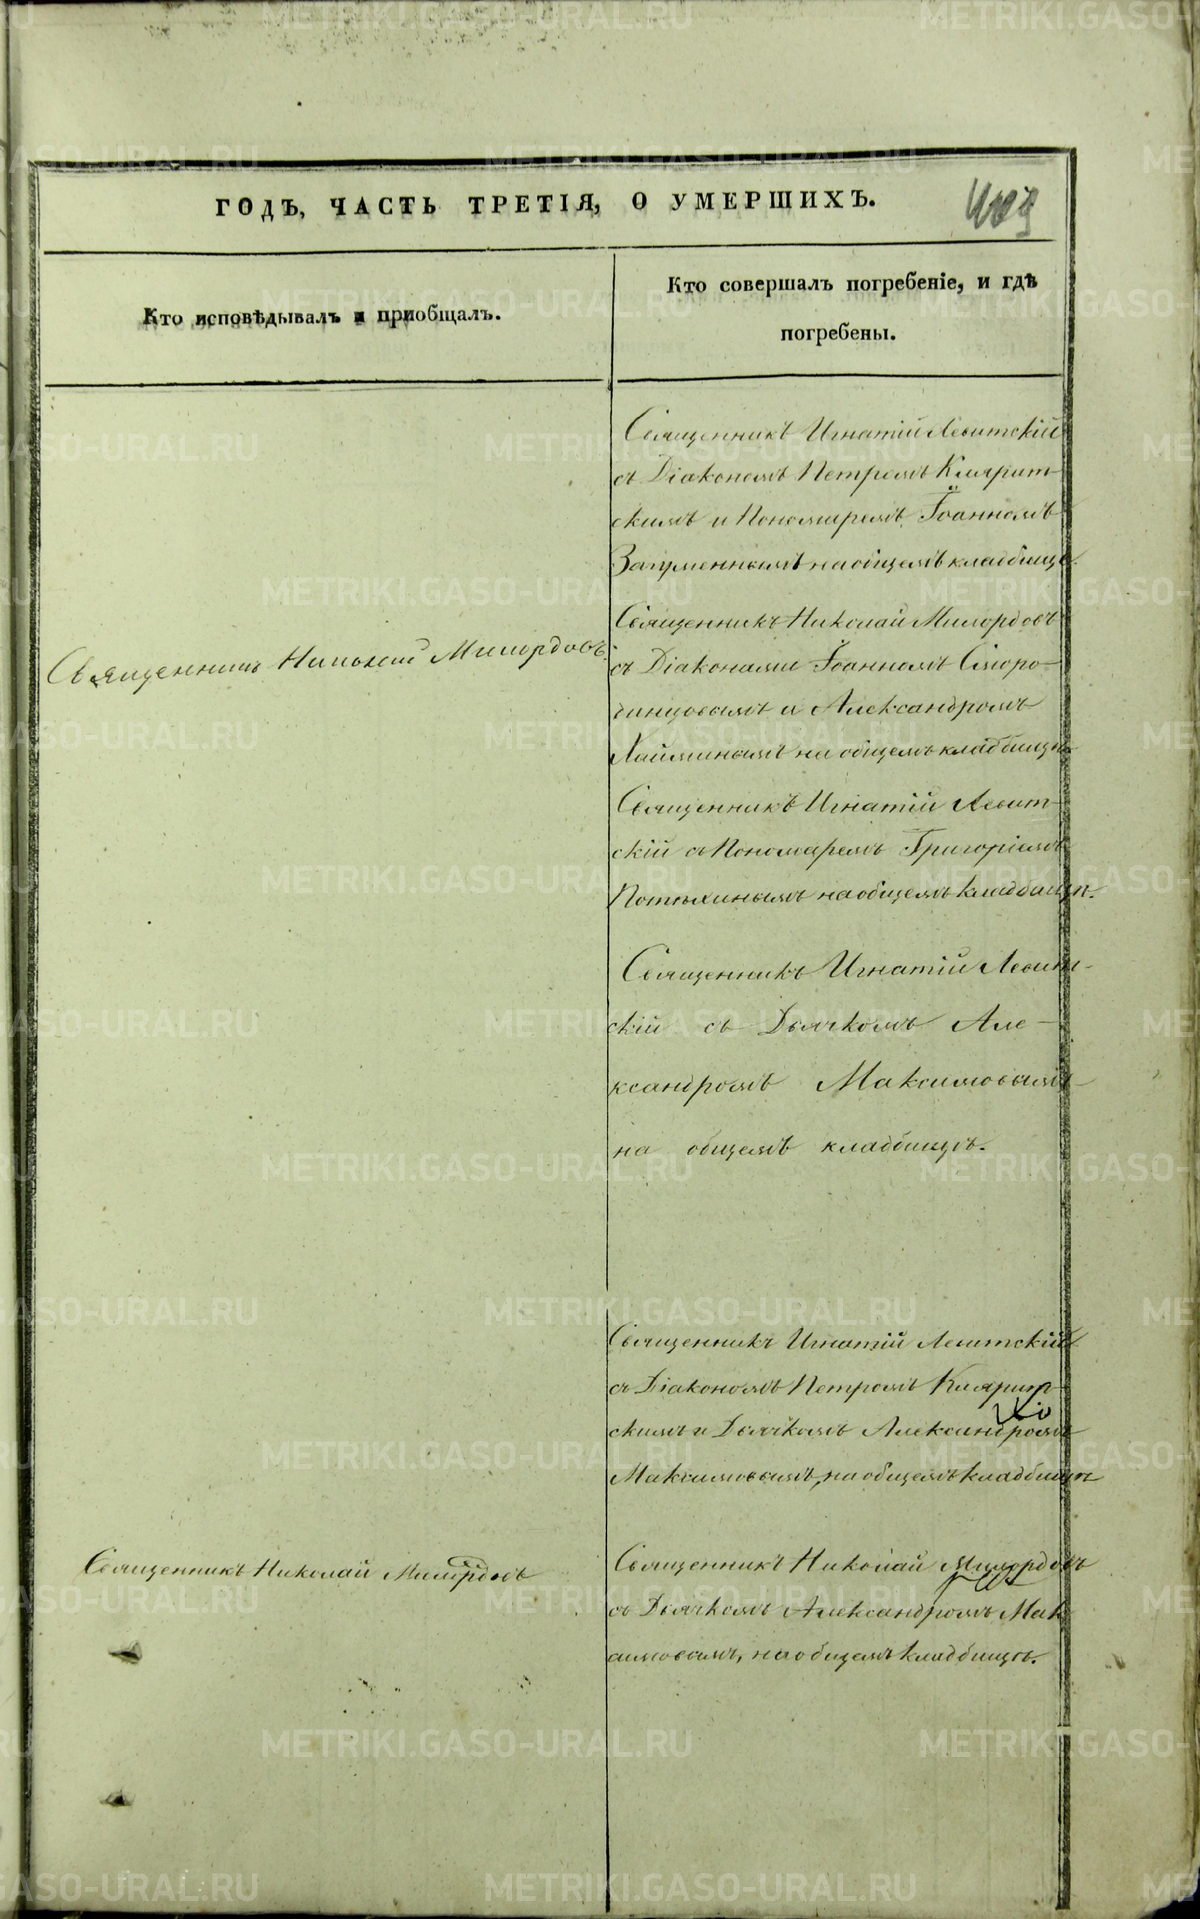 ГОДЪ, ЧАСТЬ ТРЕТІЯ, О УМЕРШИХЪ.
Кто исповѣдывалъ и пріобщалъ.
Кто совершалъ погребеніе, и гдѣ
погребены.
Священникъ Игнатій Левитскій
съ Діакономъ Петромъ Клярит-
скимъ и Пономаремъ Іоанномъ
Загуменнымъ на общемъ кладбищѣ.
Священникъ Николай Милордовъ
Священникъ Николай Милордовъ
съ Діаконами Іоанномъ Сморо-
динцовымъ и Александромъ
на общемъ кладбищѣ
Священникъ Игнатій Левит-
скій съ Пономаремъ Григоріемъ
Потѣхинымъ на общемъ кладбищѣ.
Священникъ Игнатій Левит-
скій съ Дьячкомъ Але-
ксандромъ Максимовымъ
на общемъ кладбищѣ.
Священникъ Игнатій Левитскій
съ Діакономъ Петромъ Клярит-
скимъ и Дьячкомъ Александромъ
Максимовымъ, на общемъ кладбищѣ
Священникъ Николай Милордовъ
Священникъ Николай Милордовъ
съ Дьячкомъ Александромъ Мак
симовымъ, на общемъ кладбищѣ.
METRIKI.GASO-URAL.RU